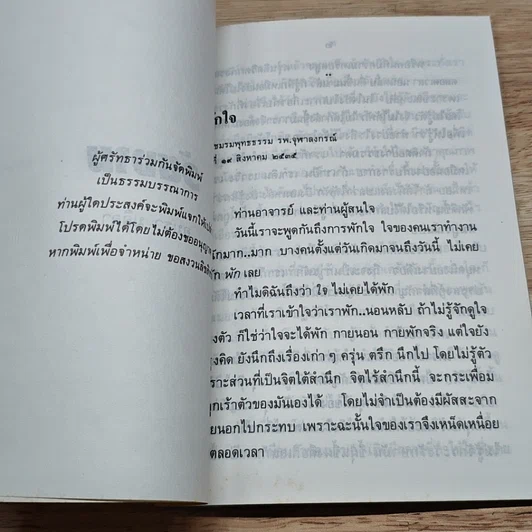 ผู้ศรัทธาร่วมกันจัดพิมพ์
เป็นธรรมบรรณาการ
ท่านผู้ใดประสงค์จะพิมพ์แจก
โปรดพิมพ์ได้โดยไม่ต้องขออนุญา
หากพิมพ์เพื่อจำหน่าย ขอสงวนลิขสิ
กใจ
ชมรมพุทธธรรม รพ.จุฬาลงกรณ์
ที่ ๑๙ สิงหาคม ๒๕๓๕
ท่านอาจารย์ และท่านผู้สนใจ
วันนี้เราจะพูดกันถึงการพักใจ ใจของคนเราทำงาน
กมาก..มาก บางคนตั้งแต่วันเกิดมาจนถึงวันนี้ ไม่เคย
ัก พักเลย
ทำไมดิฉันถึงว่า ใจ ไม่เคยได้พัก
เวลาที่เราเข้าใจว่าเราพัก..นอนหลับ ถ้าไม่รู้จักดูใจ
องตัว ก็ใช่ว่าใจจะได้พัก กายนอน กายพักจริง แต่ใจยัง
งคิด ยังนึกถึงเรื่องเก่า ๆ ครุ่น ตรึก นึกไป โดยไม่รู้ตัว
ราะส่วนที่เป็นจิตใต้สำนึก จิตไร้สำนึกนี้ จะกระเพื่อม
ุกเร้าตัวของมันเองได้ โดยไม่จำเป็นต้องมีผัสสะจาก
ยนอกไปกระทบ เพราะฉะนั้นใจของเราจึงเหน็ดเหนื่อย
ตลอดเวลา